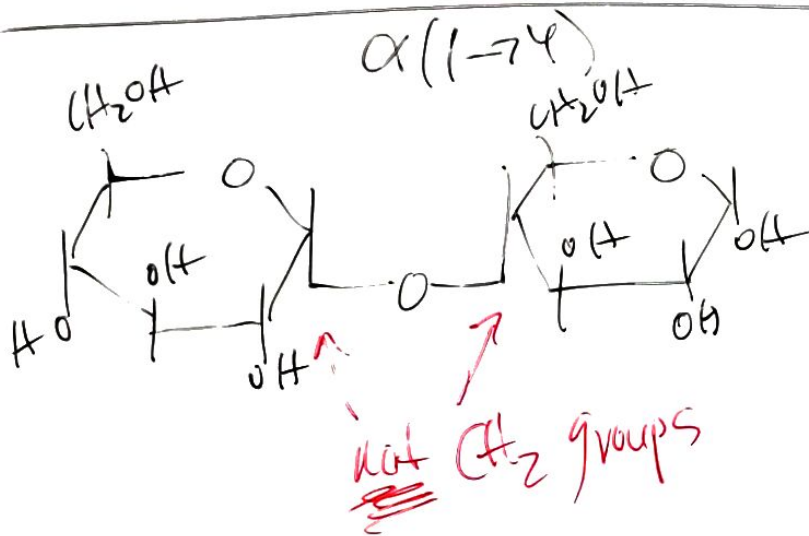 α(1→4)
CH₂OH
CH₂OH
O
O
OH
OH
OH
HO
O
OH
OH
not CH₂ groups